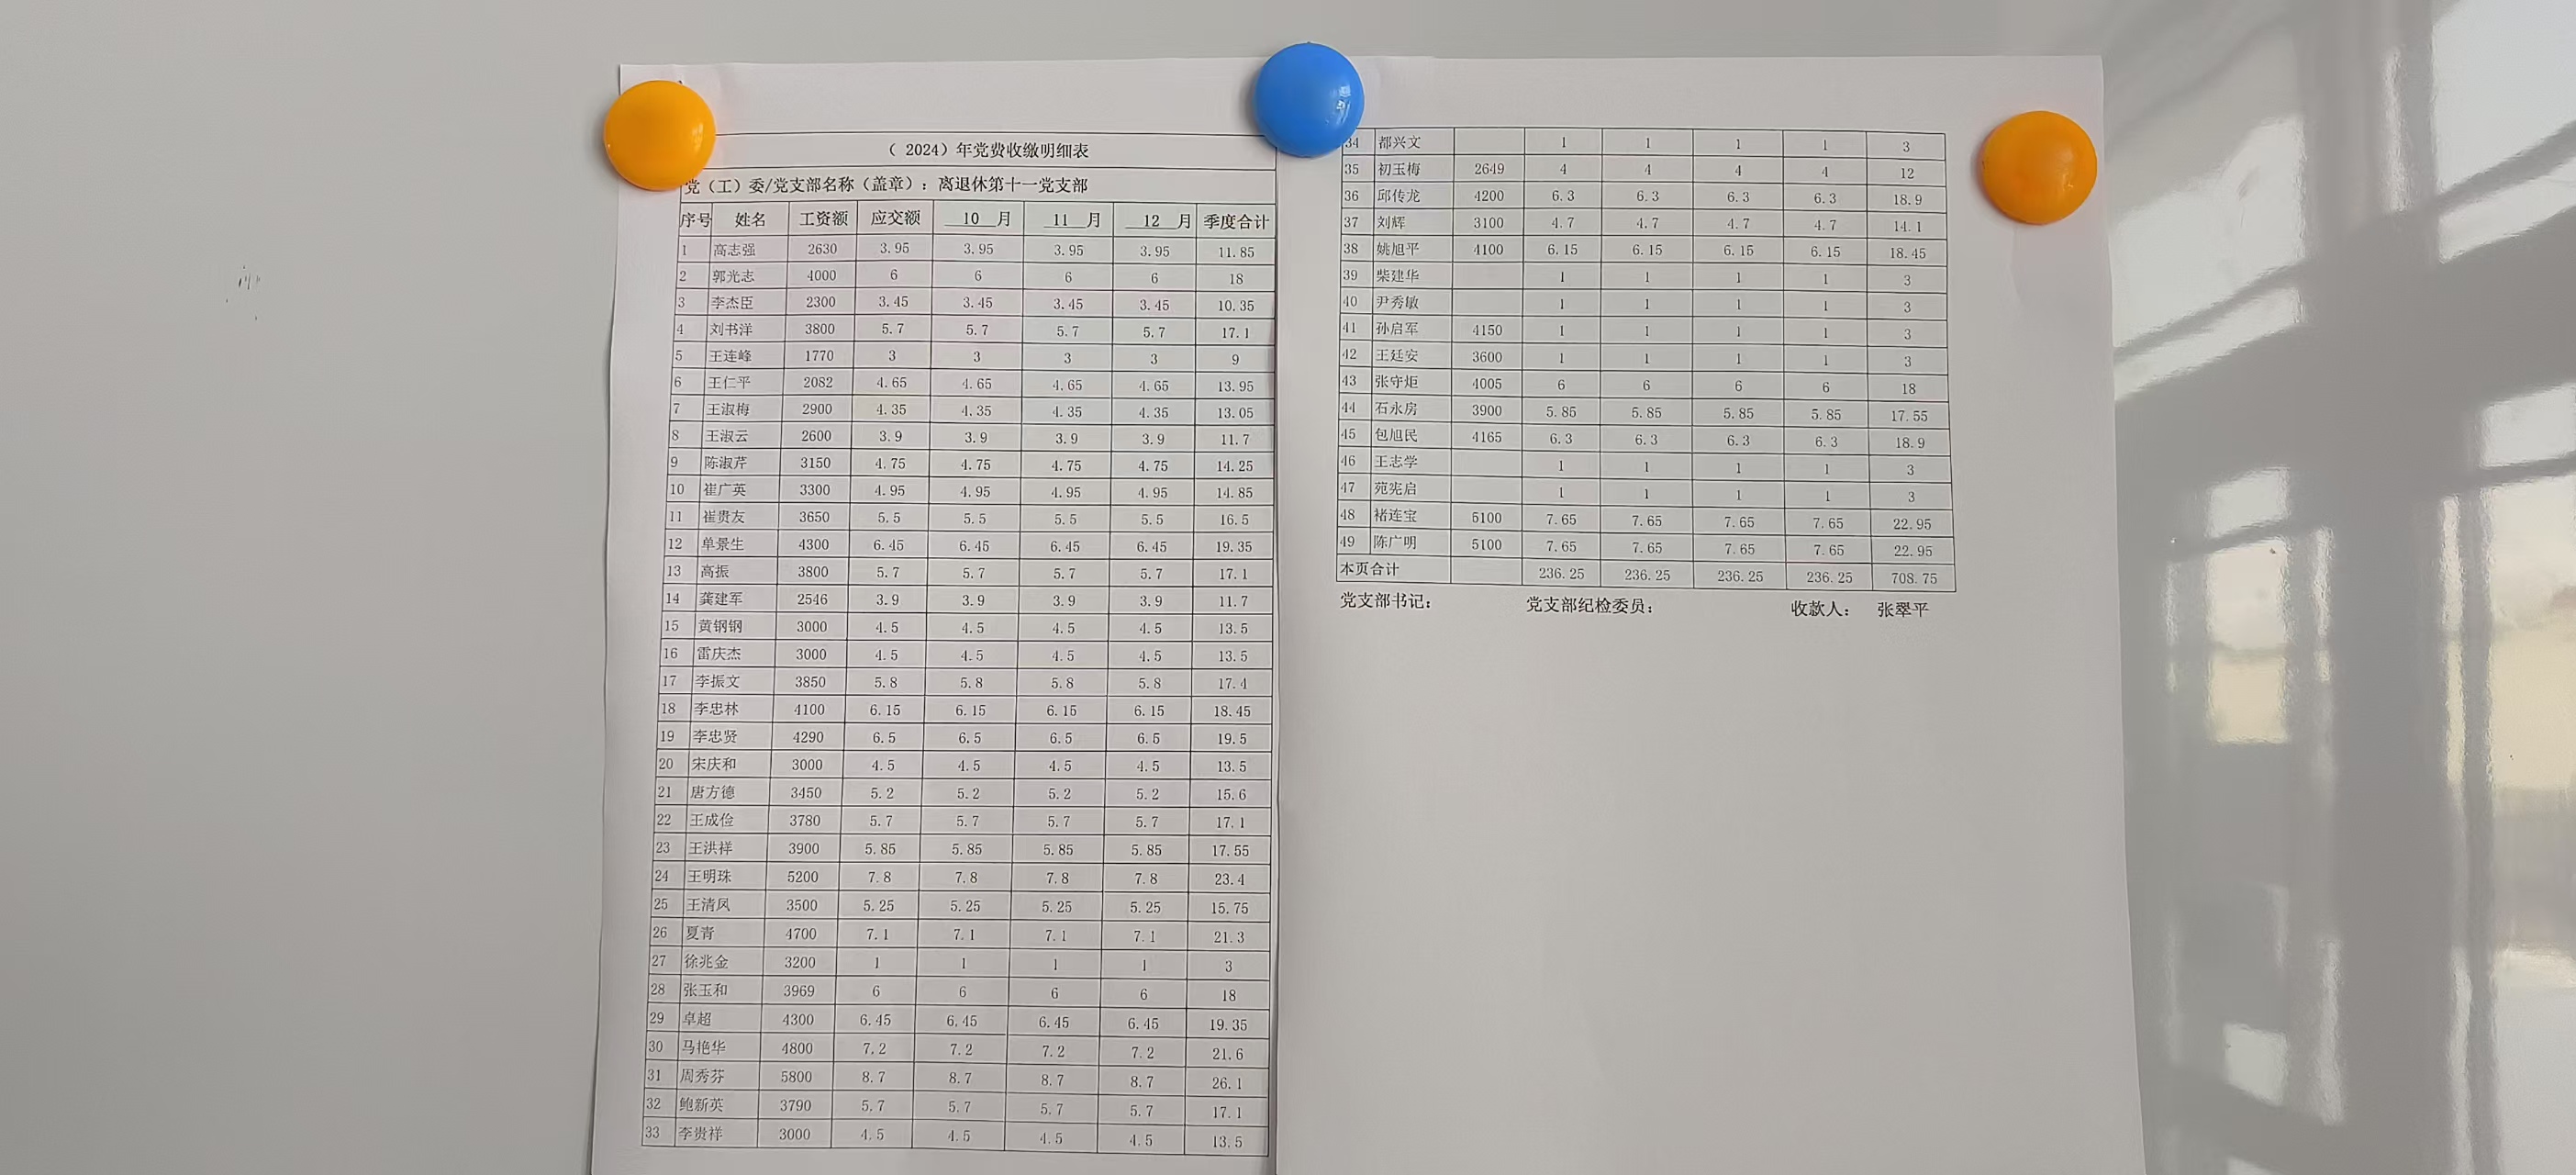 （ 2024）年党费收缴明细表
党（工）委/党支部名称（盖章）：离退休第十一党支部
序号 姓名 工资额 应交额 10 月 11 月 12 月 季度合计
1 高志强 2630 3.95 3.95 3.95 3.95 11.85
2 郭光志 4000 6 6 6 6 18
3 李杰臣 2300 3.45 3.45 3.45 3.45 10.35
4 刘书洋 3800 5.7 5.7 5.7 5.7 17.1
5 王连峰 1770 3 3 3 3 9
6 王仁平 2082 4.65 4.65 4.65 4.65 13.95
7 王淑梅 2900 4.35 4.35 4.35 4.35 13.05
8 王淑云 2600 3.9 3.9 3.9 3.9 11.7
9 陈淑芹 3150 4.75 4.75 4.75 4.75 14.25
10 崔广英 3300 4.95 4.95 4.95 4.95 14.85
11 崔贵友 3650 5.5 5.5 5.5 5.5 16.5
12 单景生 4300 6.45 6.45 6.45 6.45 19.35
13 高振 3800 5.7 5.7 5.7 5.7 17.1
14 龚建军 2546 3.9 3.9 3.9 3.9 11.7
15 黄钢钢 3000 4.5 4.5 4.5 4.5 13.5
16 雷庆杰 3000 4.5 4.5 4.5 4.5 13.5
17 李振文 3850 5.8 5.8 5.8 5.8 17.4
18 李忠林 4100 6.15 6.15 6.15 6.15 18.45
19 李忠贤 4290 6.5 6.5 6.5 6.5 19.5
20 宋庆和 3000 4.5 4.5 4.5 4.5 13.5
21 唐方德 3450 5.2 5.2 5.2 5.2 15.6
22 王成俭 3780 5.7 5.7 5.7 5.7 17.1
23 王洪祥 3900 5.85 5.85 5.85 5.85 17.55
24 王明珠 5200 7.8 7.8 7.8 7.8 23.4
25 王清凤 3500 5.25 5.25 5.25 5.25 15.75
26 夏青 4700 7.1 7.1 7.1 7.1 21.3
27 徐兆金 3200 1 1 1 1 3
28 张玉和 3969 6 6 6 6 18
29 卓超 4300 6.45 6.45 6.45 6.45 19.35
30 马艳华 4800 7.2 7.2 7.2 7.2 21.6
31 周秀芬 5800 8.7 8.7 8.7 8.7 26.1
32 鲍新英 3790 5.7 5.7 5.7 5.7 17.1
33 李贵祥 3000 4.5 4.5 4.5 4.5 13.5
34 都兴文 1 1 1 1 3
35 初玉梅 2649 4 4 4 4 12
36 邱传龙 4200 6.3 6.3 6.3 6.3 18.9
37 刘辉 3100 4.7 4.7 4.7 4.7 14.1
38 姚旭平 4100 6.15 6.15 6.15 6.15 18.45
39 柴建华 1 1 1 1 3
40 尹秀敏 1 1 1 1 3
41 孙启军 4150 1 1 1 1 3
42 王廷安 3600 1 1 1 1 3
43 张守炬 4005 6 6 6 6 18
44 石永房 3900 5.85 5.85 5.85 5.85 17.55
45 包旭民 4165 6.3 6.3 6.3 6.3 18.9
46 王志学 1 1 1 1 3
47 苑宪启 1 1 1 1 3
48 褚连宝 5100 7.65 7.65 7.65 7.65 22.95
49 陈广明 5100 7.65 7.65 7.65 7.65 22.95
本页合计 236.25 236.25 236.25 236.25 708.75
党支部书记： 党支部纪检委员： 收款人： 张翠平